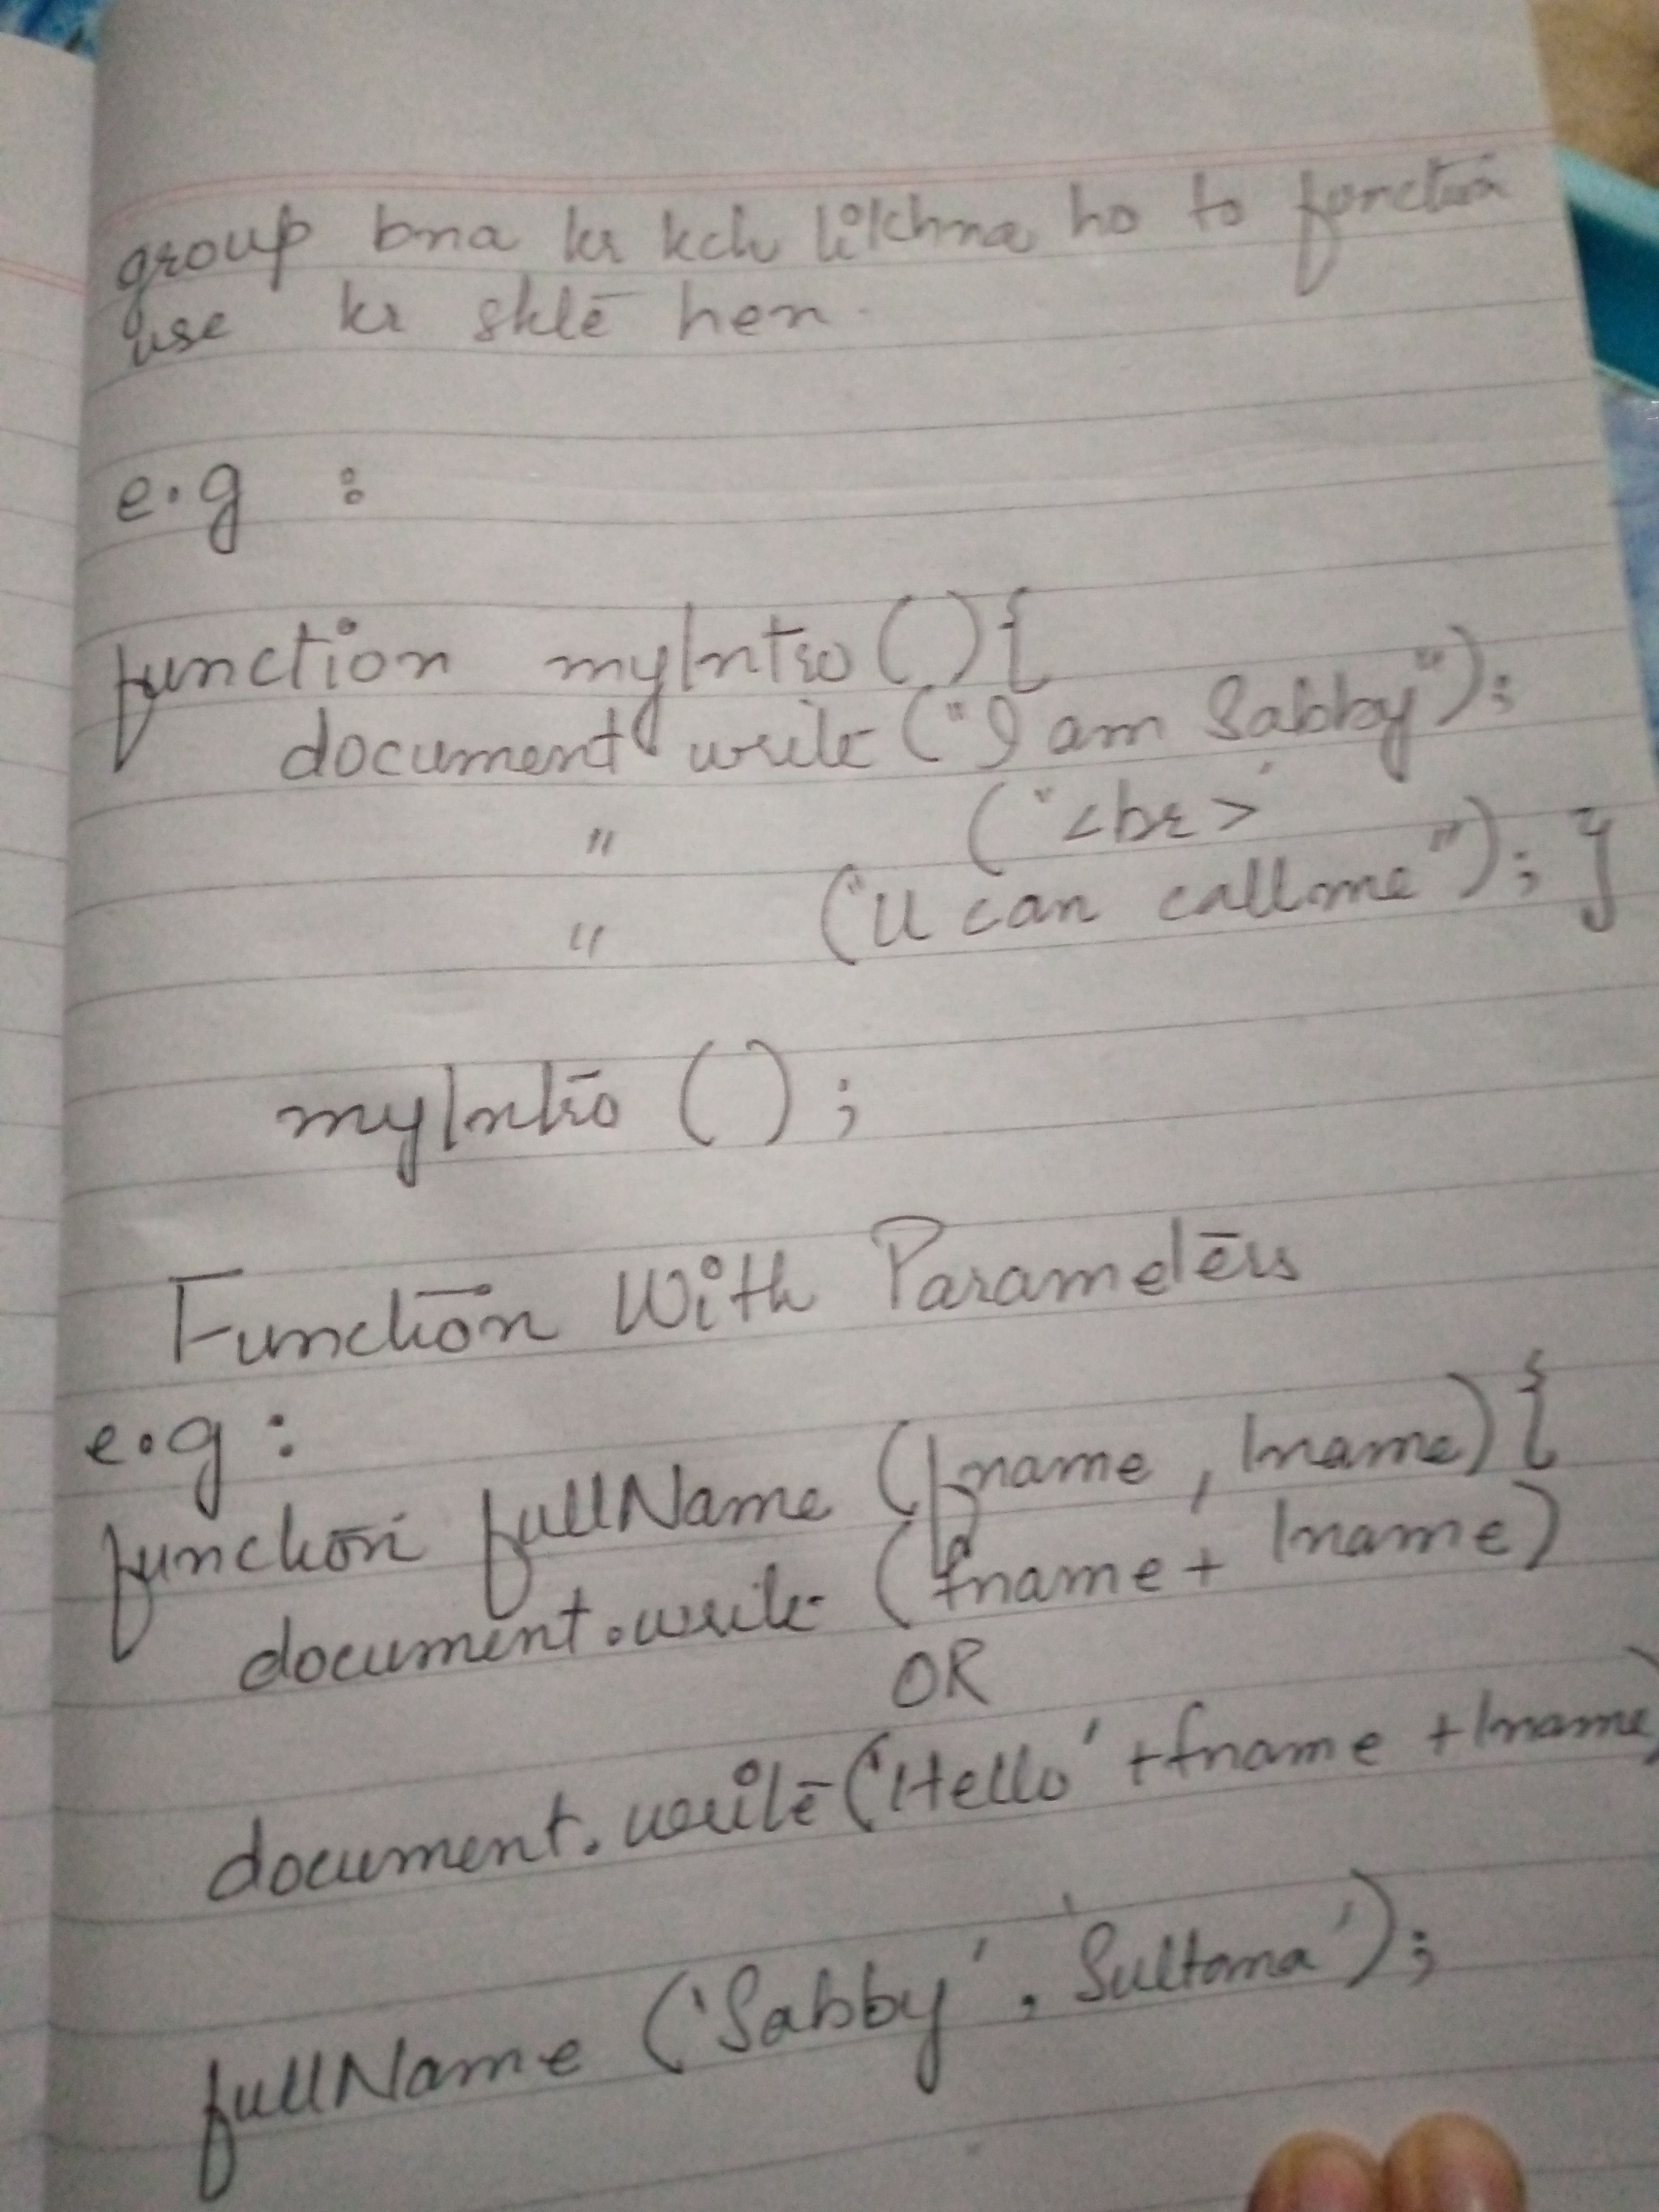 group bna kr kch likhna ho to function
use kr skte hen.
e.g :
function myIntro () {
document.write ("I am Sabby");
" ("<br>"
" ("U can call me"); }
myIntro () ;
Function With Parameters
e.g :
function fullName (fname , lname) {
document.write (fname + lname)
OR
document.write ('Hello' + fname + lname)
fullName ('Sabby' , 'Sultana');